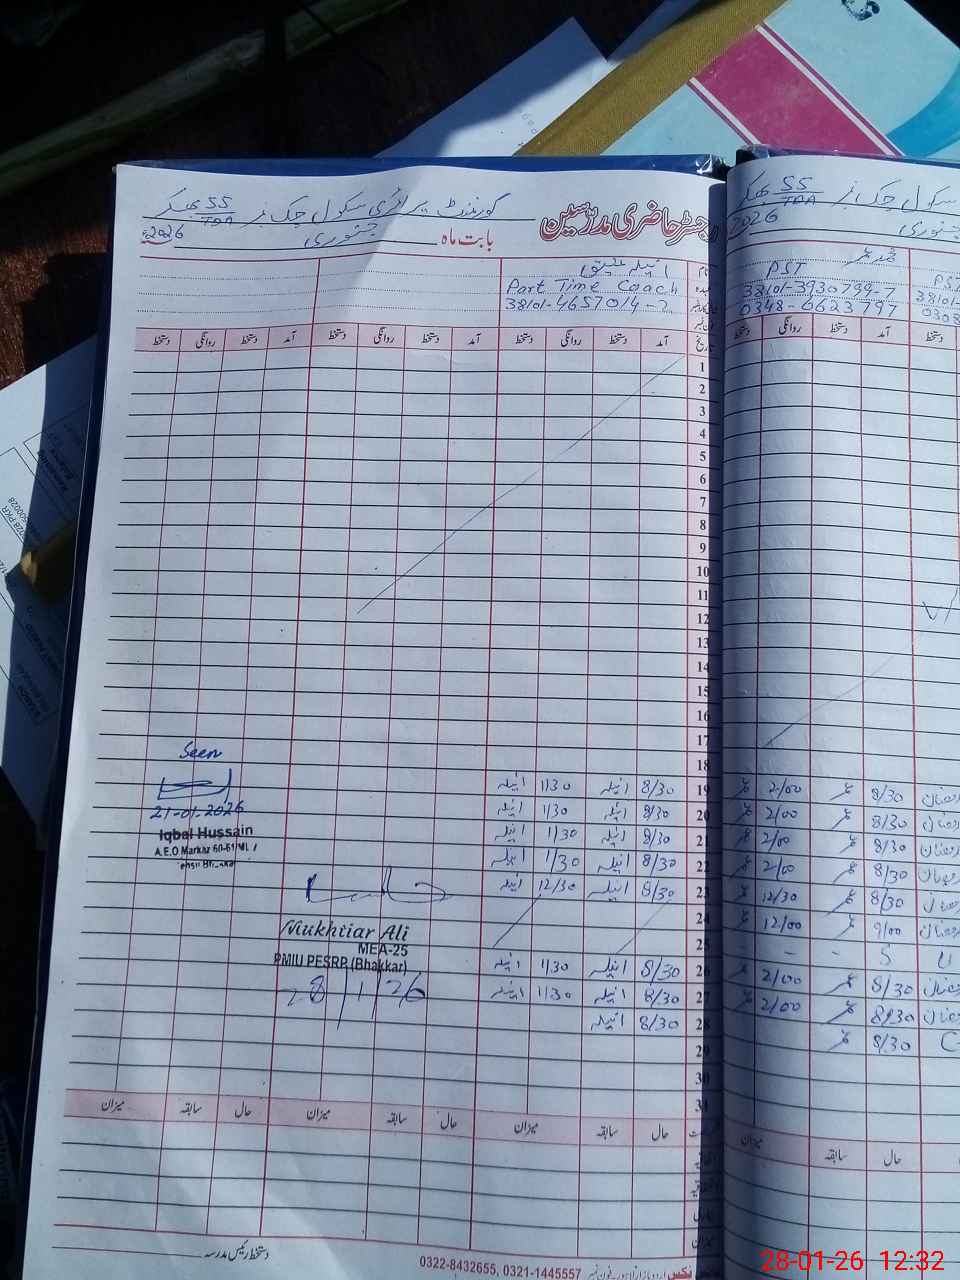 رجسٹر حاضری مدرسین
گورنمنٹ پرائمری سکول چک نمبر 55/TDA بھکر
بابت ماہ جنوری 2026ء
انیلہ عتیق
Part Time Coach
38101-4657014-2
آمد دستخط روانگی دستخط آمد دستخط روانگی دستخط آمد دستخط روانگی دستخط
1
2
3
4
5
6
7
8
9
10
11
12
13
14
15
16
17
18
19 8/30 انیلہ 1/30 انیلہ
20 8/30 انیلہ 1/30 انیلہ
21 8/30 انیلہ 1/30 انیلہ
22 8/30 انیلہ 1/30 انیلہ
23 8/30 انیلہ 12/30 انیلہ
24
25
26 8/30 انیلہ 1/30 انیلہ
27 8/30 انیلہ 1/30 انیلہ
28 8/30 انیلہ
29
30
31
Seen
21-01-2026
Iqbal Hussain
A.E.O Markaz
Mukhtiar Ali
MEA-25
PMIU PESRP (Bhakkar)
28/1/26
حال سابقہ میزان حال سابقہ میزان حال سابقہ میزان
میزان
دستخط رئیس مدرسہ
0322-8432655, 0321-1445557
سکول چک نمبر 55/TDA بھکر
جنوری 2026
محمد عمر
PST
38101-3930799-7
0348-6623797
PST
38101-
0308
دستخط آمد دستخط روانگی
8/30 عمر 2/00 عمر
8/30 عمر 2/00 عمر
8/30 عمر 2/00 عمر
8/30 عمر 2/00 عمر
8/30 عمر 12/30 عمر
9/00 عمر 12/00 عمر
S - -
8/30 عمر 2/00 عمر
8/30 عمر 2/00 عمر
8/30 عمر
حال سابقہ میزان
28-01-26 12:32